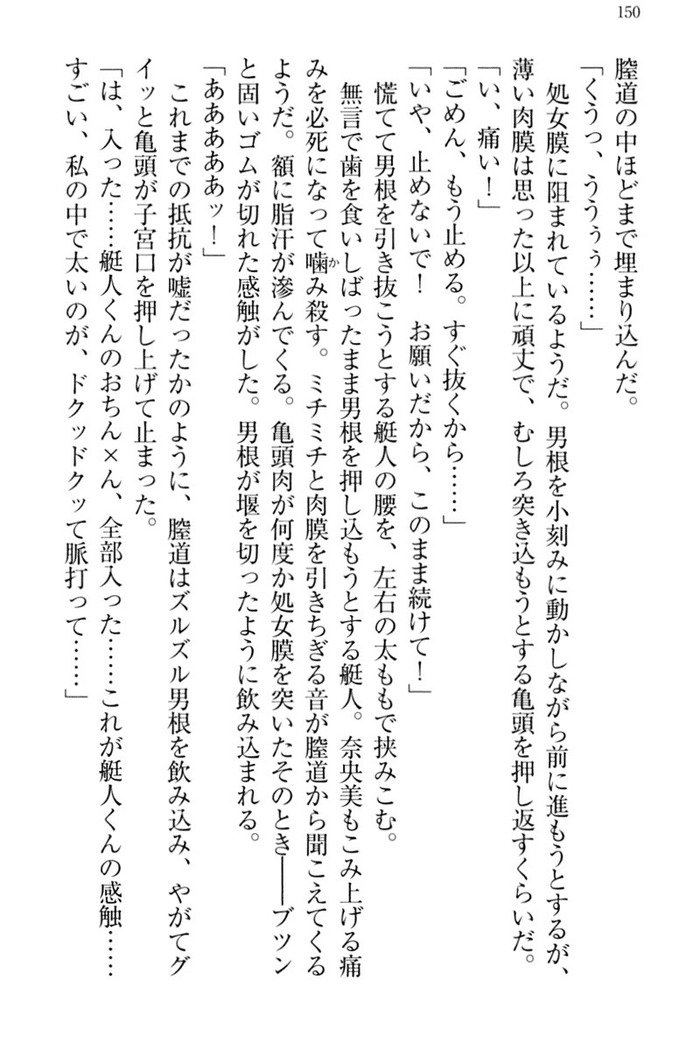 150
膣道の中ほどまで埋まり込んだ。
「くうっ、ううぅぅ……」
処女膜に阻まれているようだ。男根を小刻みに動かしながら前に進もうとするが、
薄い肉膜は思った以上に頑丈で、むしろ突き込もうとする亀頭を押し返すくらいだ。
「い、痛い！」
「ごめん、もう止める。すぐ抜くから……」
「いや、止めないで！　お願いだから、このまま続けて！」
慌てて男根を引き抜こうとする艇人の腰を、左右の太ももで挟みこむ。
無言で歯を食いしばったまま男根を押し込もうとする艇人。奈央美もこみ上げる痛
みを必死になって噛み殺す。ミチミチと肉膜を引きちぎる音が膣道から聞こえてくる
ようだ。額に脂汗が滲んでくる。亀頭肉が何度か処女膜を突いたそのとき――ブツン
と固いゴムが切れた感触がした。男根が堰を切ったように飲み込まれる。
「ああああぁッ！」
これまでの抵抗が嘘だったかのように、膣道はズルズル男根を飲み込み、やがてグ
イッと亀頭が子宮口を押し上げて止まった。
「は、入った……艇人くんのおちん×ん、全部入った……これが艇人くんの感触……
すごい、私の中で太いのが、ドクッドクッて脈打って……」